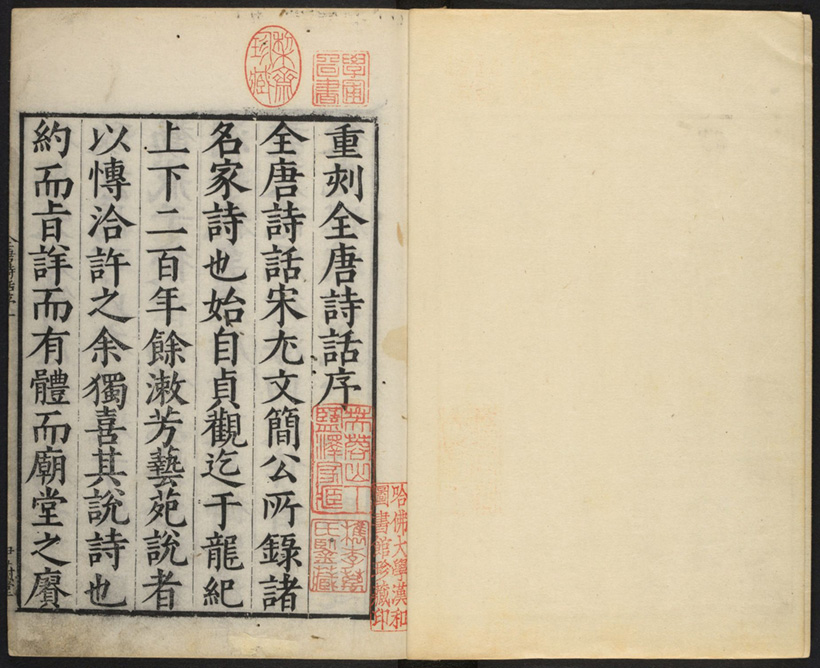 重刻全唐詩話序
全唐詩話宋尤文簡公所錄諸
名家詩也始自貞觀迄于龍紀
上下二百年餘漱芳藝苑說者
以愽洽許之余獨喜其說詩也
約而旨詳而有體而廟堂之賡
哈佛大學漢和
圖書館珍藏印